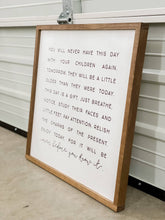 YOU WILL NEVER HAVE THIS DAY
WITH YOUR CHILDREN AGAIN.
TOMORROW, THEY WILL BE A LITTLE
OLDER THAN THEY WERE TODAY.
THIS DAY IS A GIFT. JUST BREATHE,
NOTICE. STUDY THEIR FACES AND
LITTLE FEET. PAY ATTENTION. RELISH
THE CHARMS OF THE PRESENT.
ENJOY TODAY. FOR IT WILL BE
over before you know it.